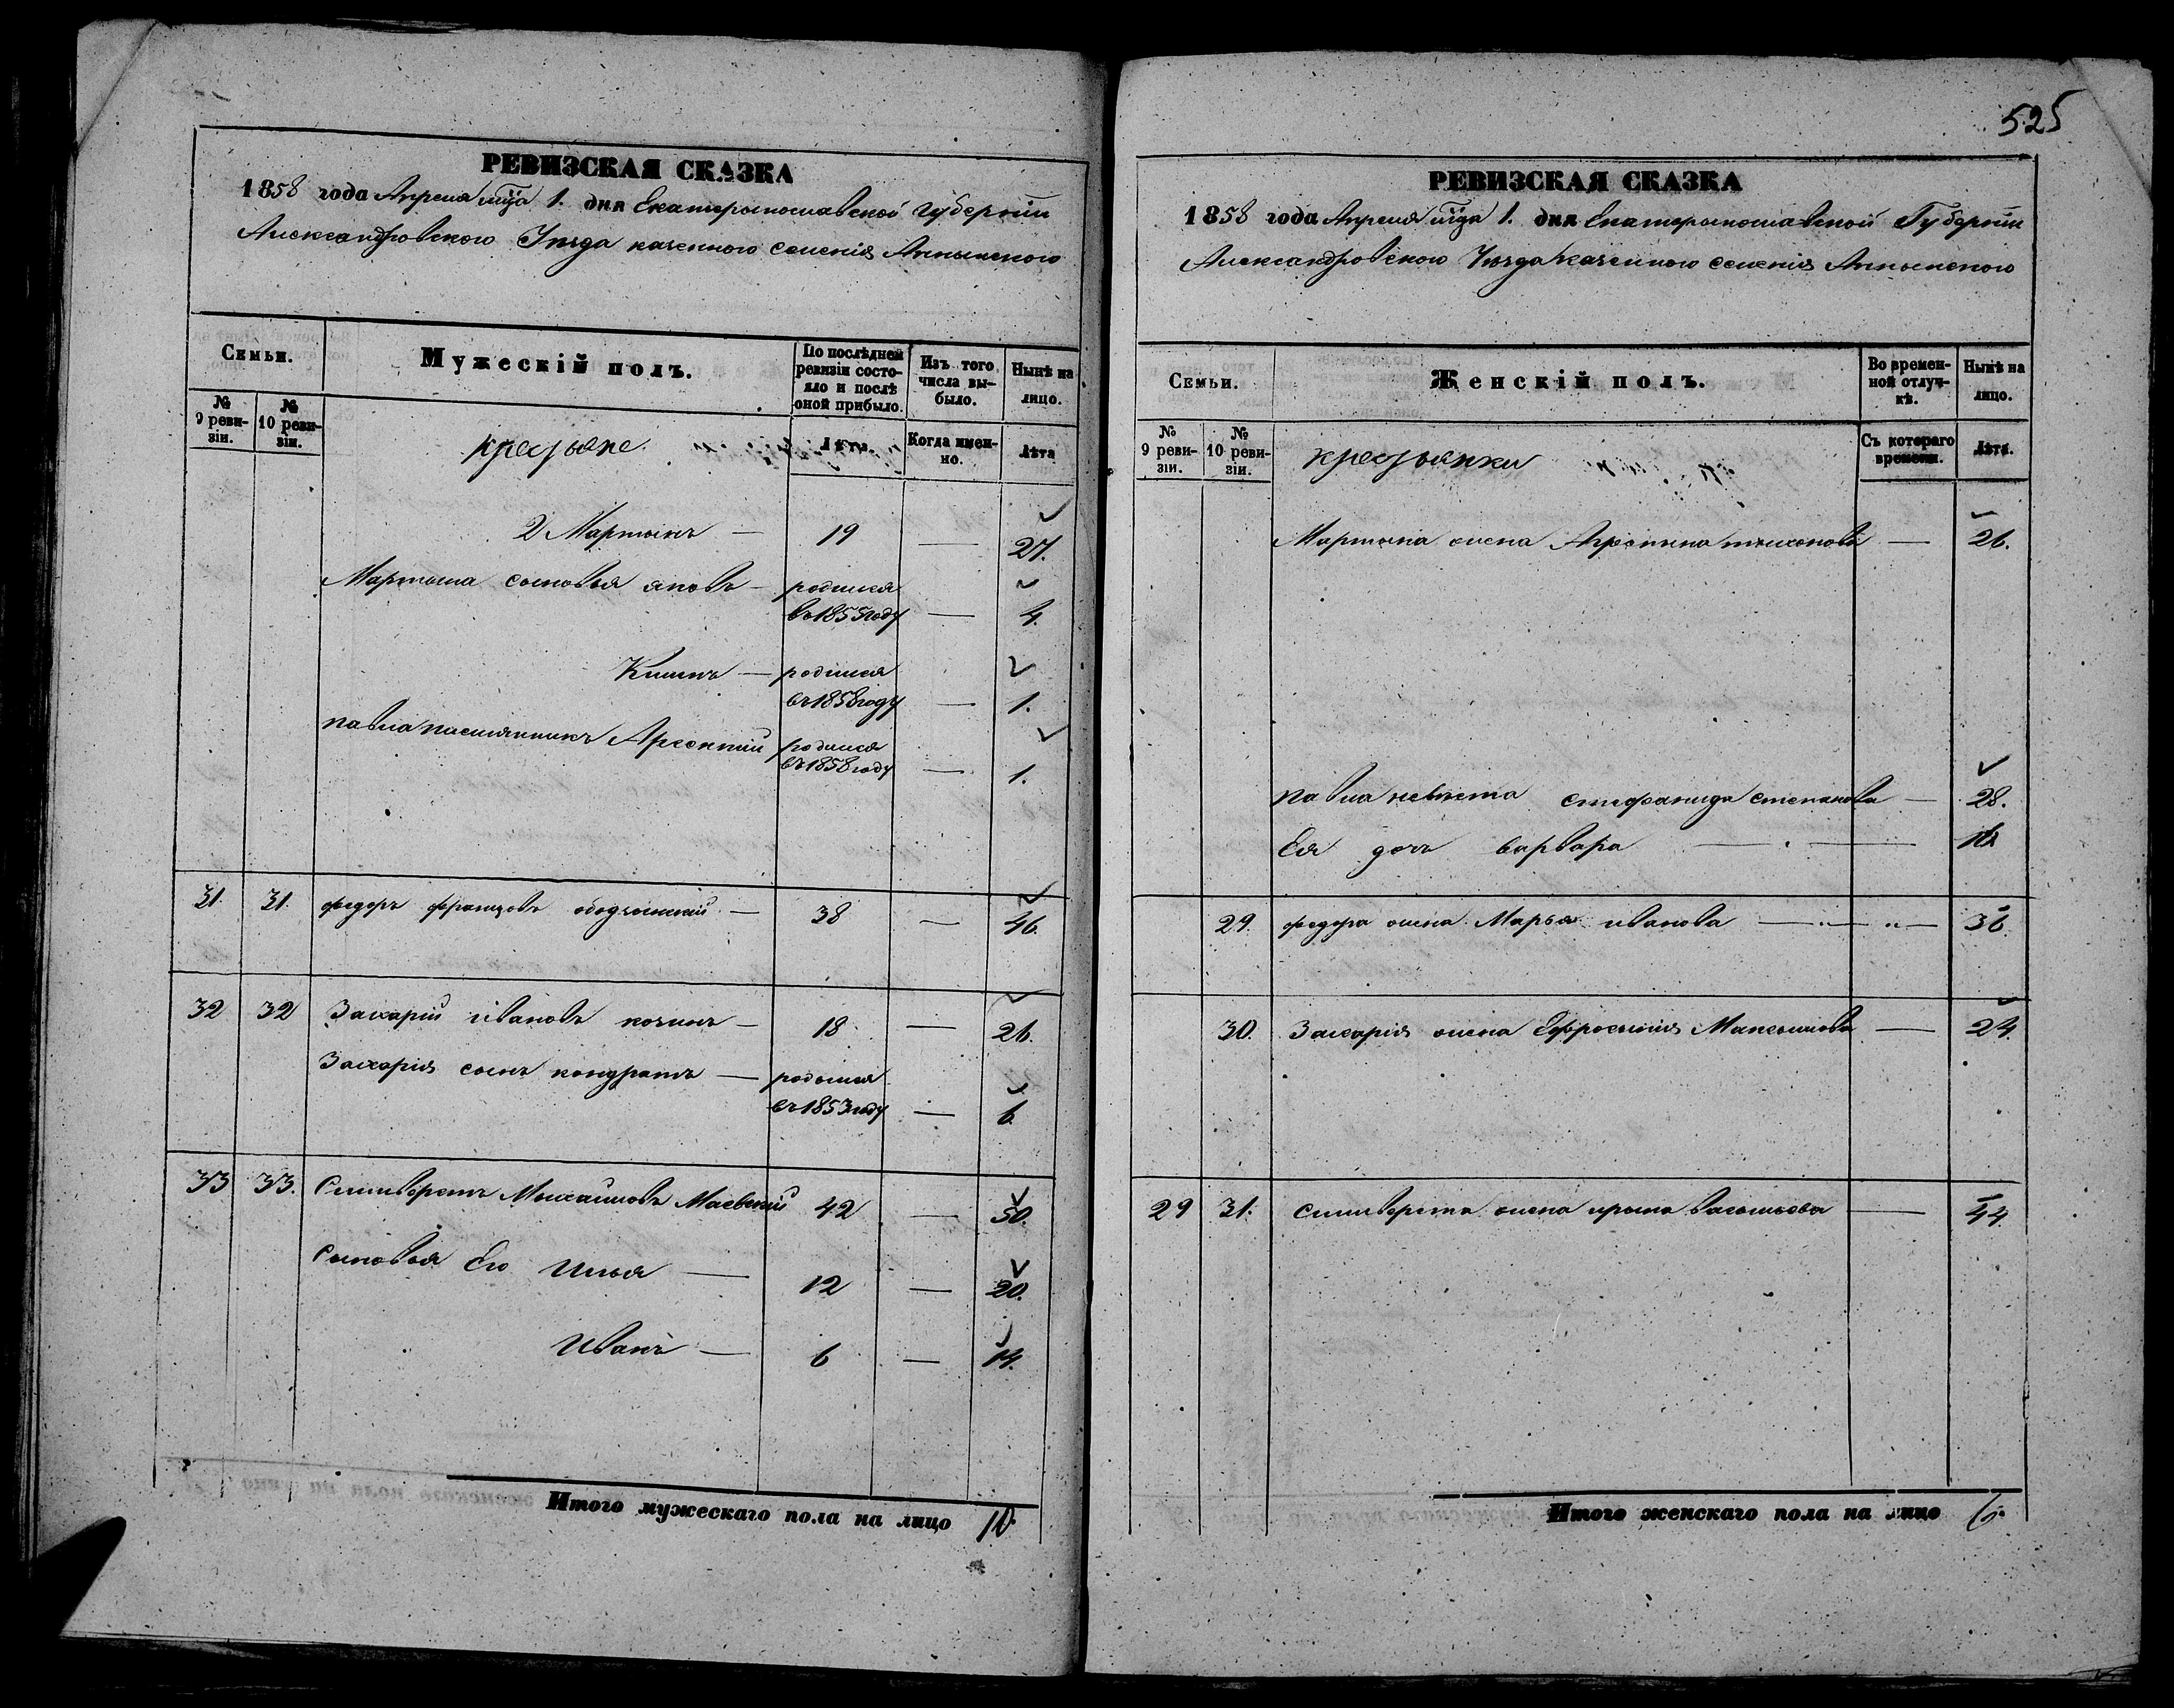 РЕВИЗСКАЯ СКАЗКА
1858 года Апреля мца 1. дня Екатеринославской губернии
Александровского Уезда казенного селения Аннинского
Семьи.
Мужескій полъ.
По послѣдней ревизіи состояло и послѣ оной прибыло.
Изъ того числа выбыло.
Нынѣ на лицо.
№ 9 ревизіи.
№ 10 ревизіи.
крестьяне
Лѣта
Когда именно.
Лѣта
2 Мартынъ — 19 — 27.
Мартына сыновья яковъ — родился
въ 1855 году — 4.
родился
въ 1858 году — 1.
павла Арсентий родился
въ 1858 году — 1.
31. 31. федоръ францовъ — 38 — 46.
32 32 Захарий ивановъ — 18 — 26.
Захария сынъ кондратъ — родился
въ 1853 году — 6.
33 33. Селиверстъ Михайловъ Маевский 42 — 50.
Сыновья Его Илья — 12 — 20.
Иванъ — 6 — 14.
Итого мужескаго пола на лицо 10.
525
РЕВИЗСКАЯ СКАЗКА
1858 года Апреля мца 1. дня Екатеринославской Губернии
Александровского Уезда казенного селения Аннинского
Семьи.
Женскій полъ.
Во временной отлучкѣ.
Нынѣ на лицо.
№ 9 ревизіи.
№ 10 ревизіи.
крестьянки
Съ котораго времени.
Лѣта.
Мартына жена Агрепина тихонова — 26.
павла невѣста степанова — 28.
Ея дочь варвара —
29. федора жена Марья иванова — 36.
30. Захария жена Ефросиния Максимова — 24.
29 31. селиверста жена ирина васильева — 44
Итого женскаго пола на лицо 6.